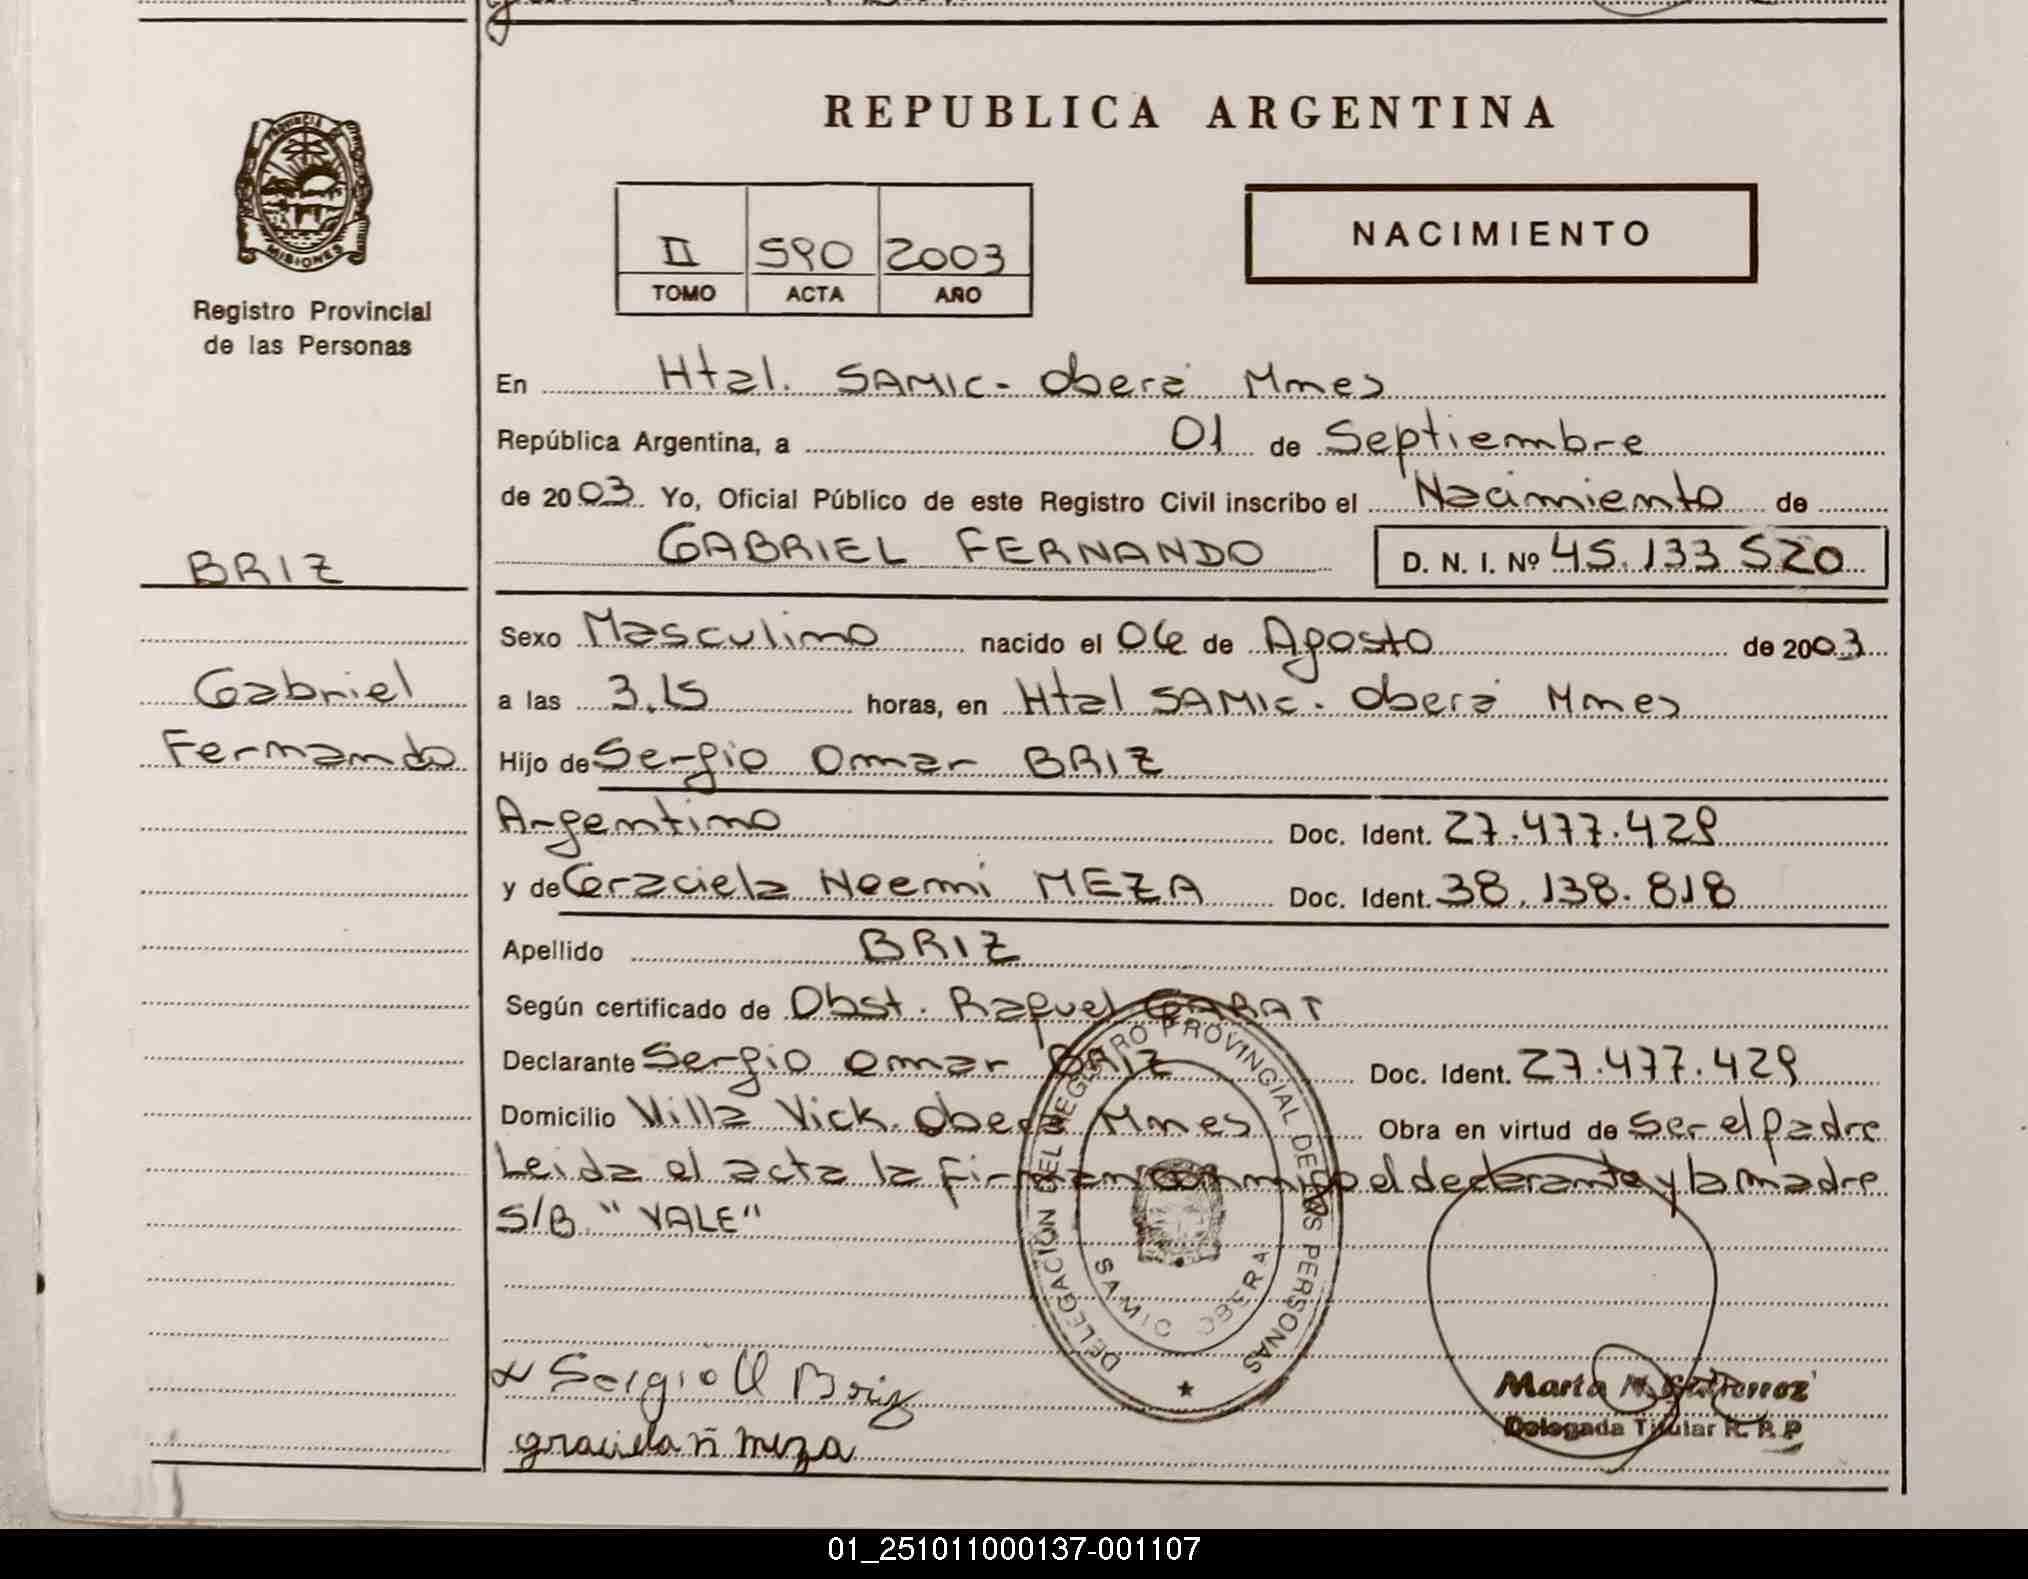 REPUBLICA ARGENTINA
PROVINCIA DE
MISIONES
Registro Provincial
de las Personas
II 590 2003
TOMO ACTA AÑO
NACIMIENTO
En Htal. SAMIC- Oberá Mnes
República Argentina, a 01 de Septiembre
de 2003 Yo, Oficial Público de este Registro Civil inscribo el Nacimiento de
GABRIEL FERNANDO D. N. I. Nº 45.133.520
BRIZ
Gabriel
Fernando
Sexo Masculino nacido el 06 de Agosto de 2003
a las 3.15 horas, en Htal SAMIC. Oberá Mnes
Hijo de Sergio Omar BRIZ
Argentino Doc. Ident. 27.477.429
y de Graciela Noemí MEZA Doc. Ident. 38.138.818
Apellido BRIZ
Según certificado de Obst. Raquel GARAT
Declarante Sergio Omar BRIZ Doc. Ident. 27.477.429
Domicilio Villa Vick. Oberá Mnes Obra en virtud de Ser el padre
Leida el acta la firman conmigo el declarante y la madre
S/B "VALE"
DELEGACION DEL REGISTRO PROVINCIAL DE LAS PERSONAS
SAMIC OBERA
x Sergio O Briz
graciela n meza
Marta N. Gutierrez
Delegada Titular R. P. P
01_251011000137-001107